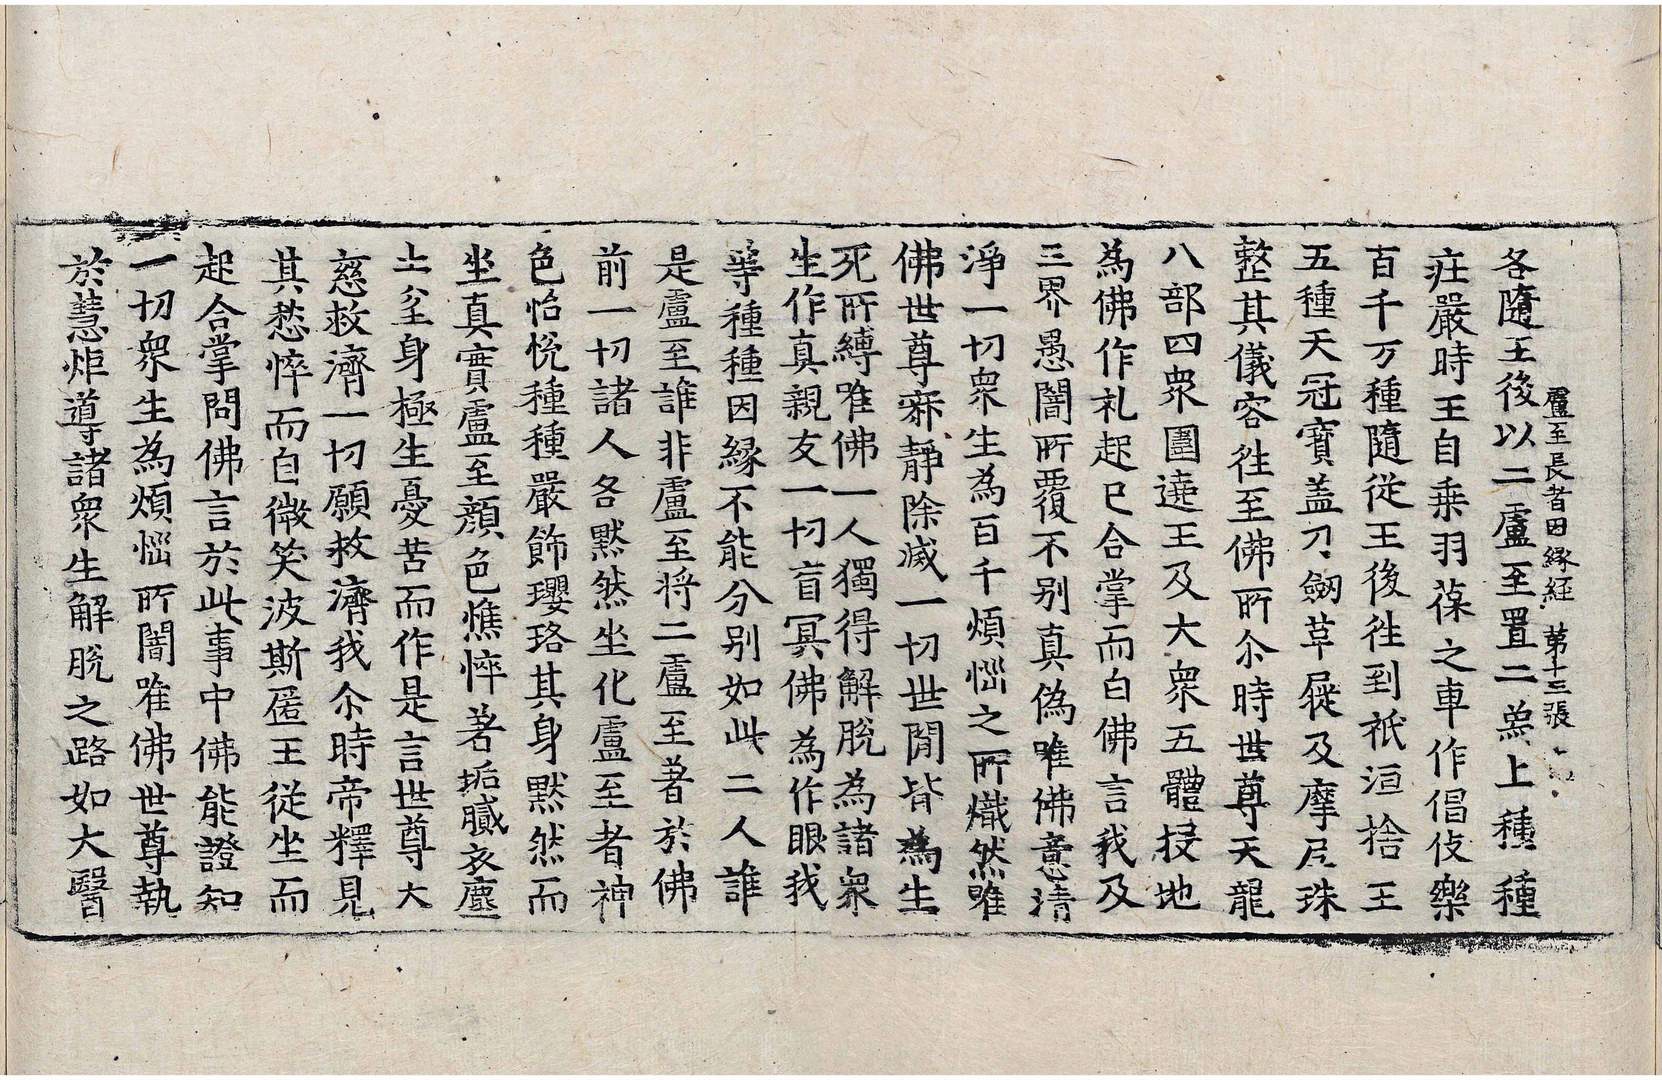 盧至長者因緣經 第十三張
各隨王後以二盧至置二象上種種
莊嚴時王自乗羽葆之車作倡伎樂
百千万種隨從王後徃到祇洹捨王
五種天冠寳盖刀劔草屣及摩尼珠
整其儀容徃至佛所尒時世尊天龍
八部四衆圍遶王及大衆五體投地
為佛作礼起已合掌而白佛言我及
三界愚闇所覆不别真偽唯佛意清
淨一切衆生為百千煩惱之所熾然唯
佛世尊寂静除滅一切世閒皆為生
死所縛唯佛一人獨得解脫為諸衆
生作真親友一切盲冥佛為作眼我
等種種因縁不能分别如此二人誰
是盧至誰非盧至将二盧至著於佛
前一切諸人各黙然坐化盧至者神
色怡恱種種嚴飾瓔珞其身黙然而
坐真實盧至顔色憔悴著垢膩衣塵
土坌身極生憂苦而作是言世尊大
慈救濟一切願救濟我尒時帝釋見
其愁悴而自微笑波斯匿王從坐而
起合掌問佛言於此事中佛能證知
一切衆生為煩惱所闇唯佛世尊執
於慧炬導諸衆生解脫之路如大醫